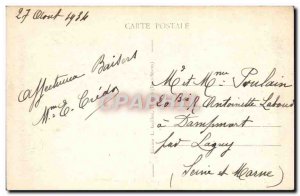 27 Aout 1934
CARTE POSTALE
Affectueux Baisers
Mme E.
Mr et Mme Poulain
Antoinette
à Dampmart
par Lagny
Seine et Marne